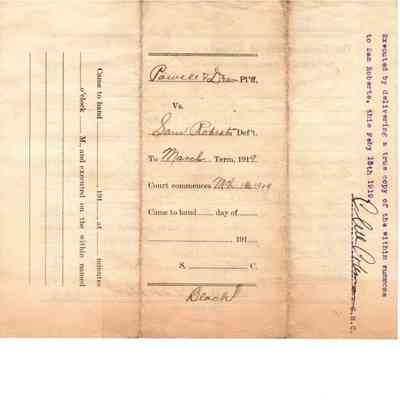 Came to hand ........ 191.. at ........ minutes
........ o'clock ........ M., and executed on the within named
Powell & Pl'ff.
Vs.
Sam Roberts Def't.
To March Term, 1919
Court commences Mch 1919
Came to hand ........ day of ........
........ 191....
S. ........ C.
Black
Executed by delivering a true copy of the within summons
to Sam Roberts, this Feby 15th 1919
S.H.C.